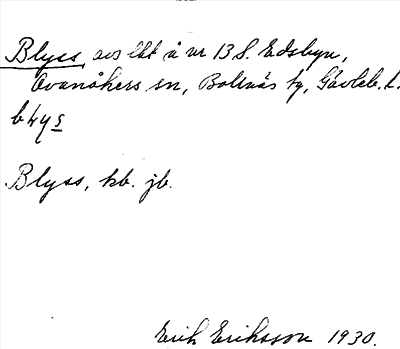 Blyss, avs lht å nr 13 S. Edsbyn,
Ovanåkers sn, Bollnäs tg, Gävleb. l.
blys
Blyss, kb. jb.
Erik Eriksson 1930.